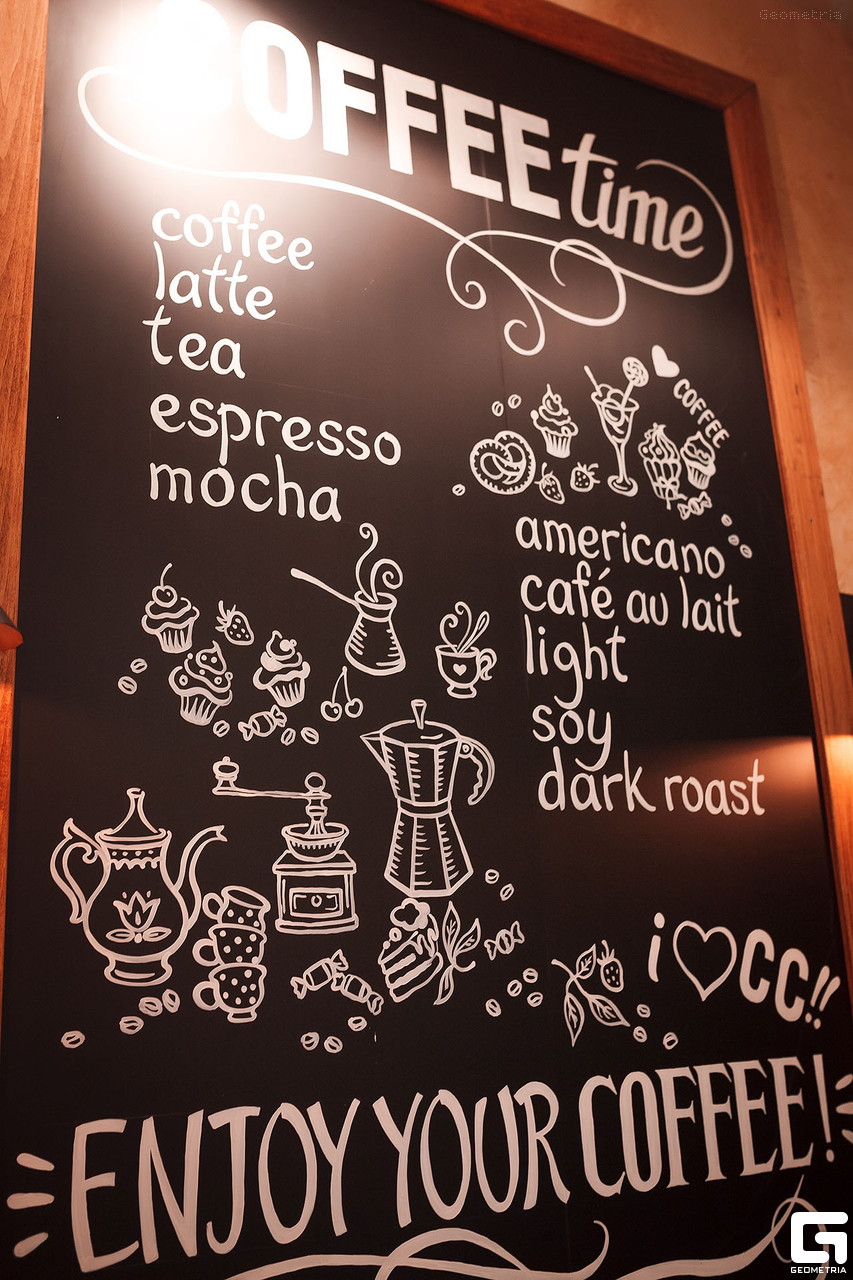 Geometria
COFFEE time
coffee
latte
tea
espresso
mocha
COFFEE
americano
café au lait
light
soy
dark roast
i ♡ CC!!
ENJOY YOUR COFFEE!
GEOMETRIA